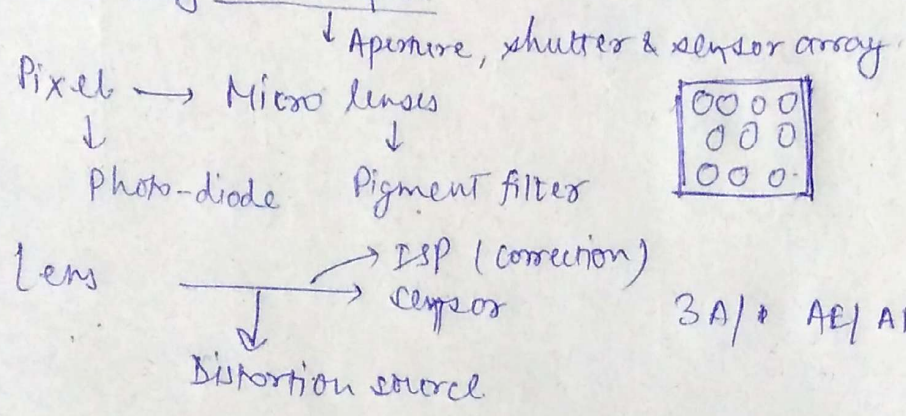 ↓ Aperture, shutter & sensor array
Pixel → Micro lenses
↓ ↓
Photo-diode Pigment filter
Lens → ISP (correction)
→ sensor
3A/ AE/
↓
Distortion source